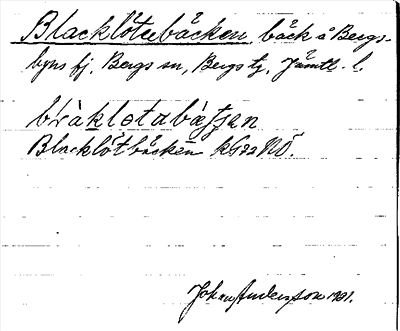 Blacklötebäcken bäck å Bergs-
byns fj. Bergs sn, Bergs tg, Jämtl. l.
bràklotabàttjan.
Blacklötbäcken kG 22 NO.
Johan Andersson 1901.